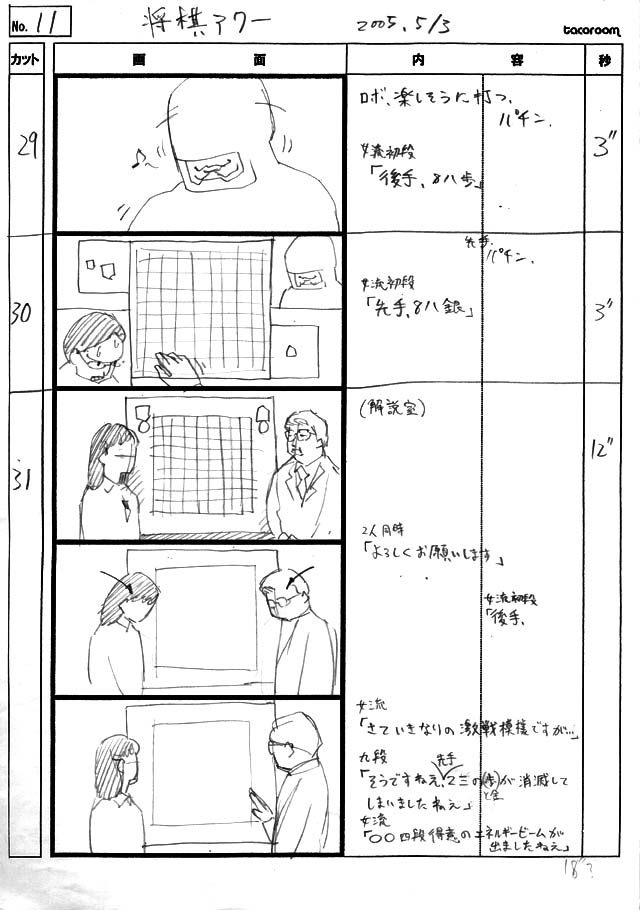 No. 11
将棋アワー
2005. 5/3
tacoroom
カット
画面
内容
秒
29
ロボ、楽しそうに打つ。
パチン。
女流初段
「後手、8八歩」
3"
30
先手、
パチン。
女流初段
「先手、8八銀」
3"
31
(解説室)
12"
2人同時
「よろしくお願いします」
女流初段
「後手、
女流
「さていきなりの激戦模様ですが…」
九段
先手
「そうですねえ、2三の歩が消滅して
と金
しまいましたねえ」
女流
「〇〇四段得意のエネルギービームが
出ましたねえ」
18"?